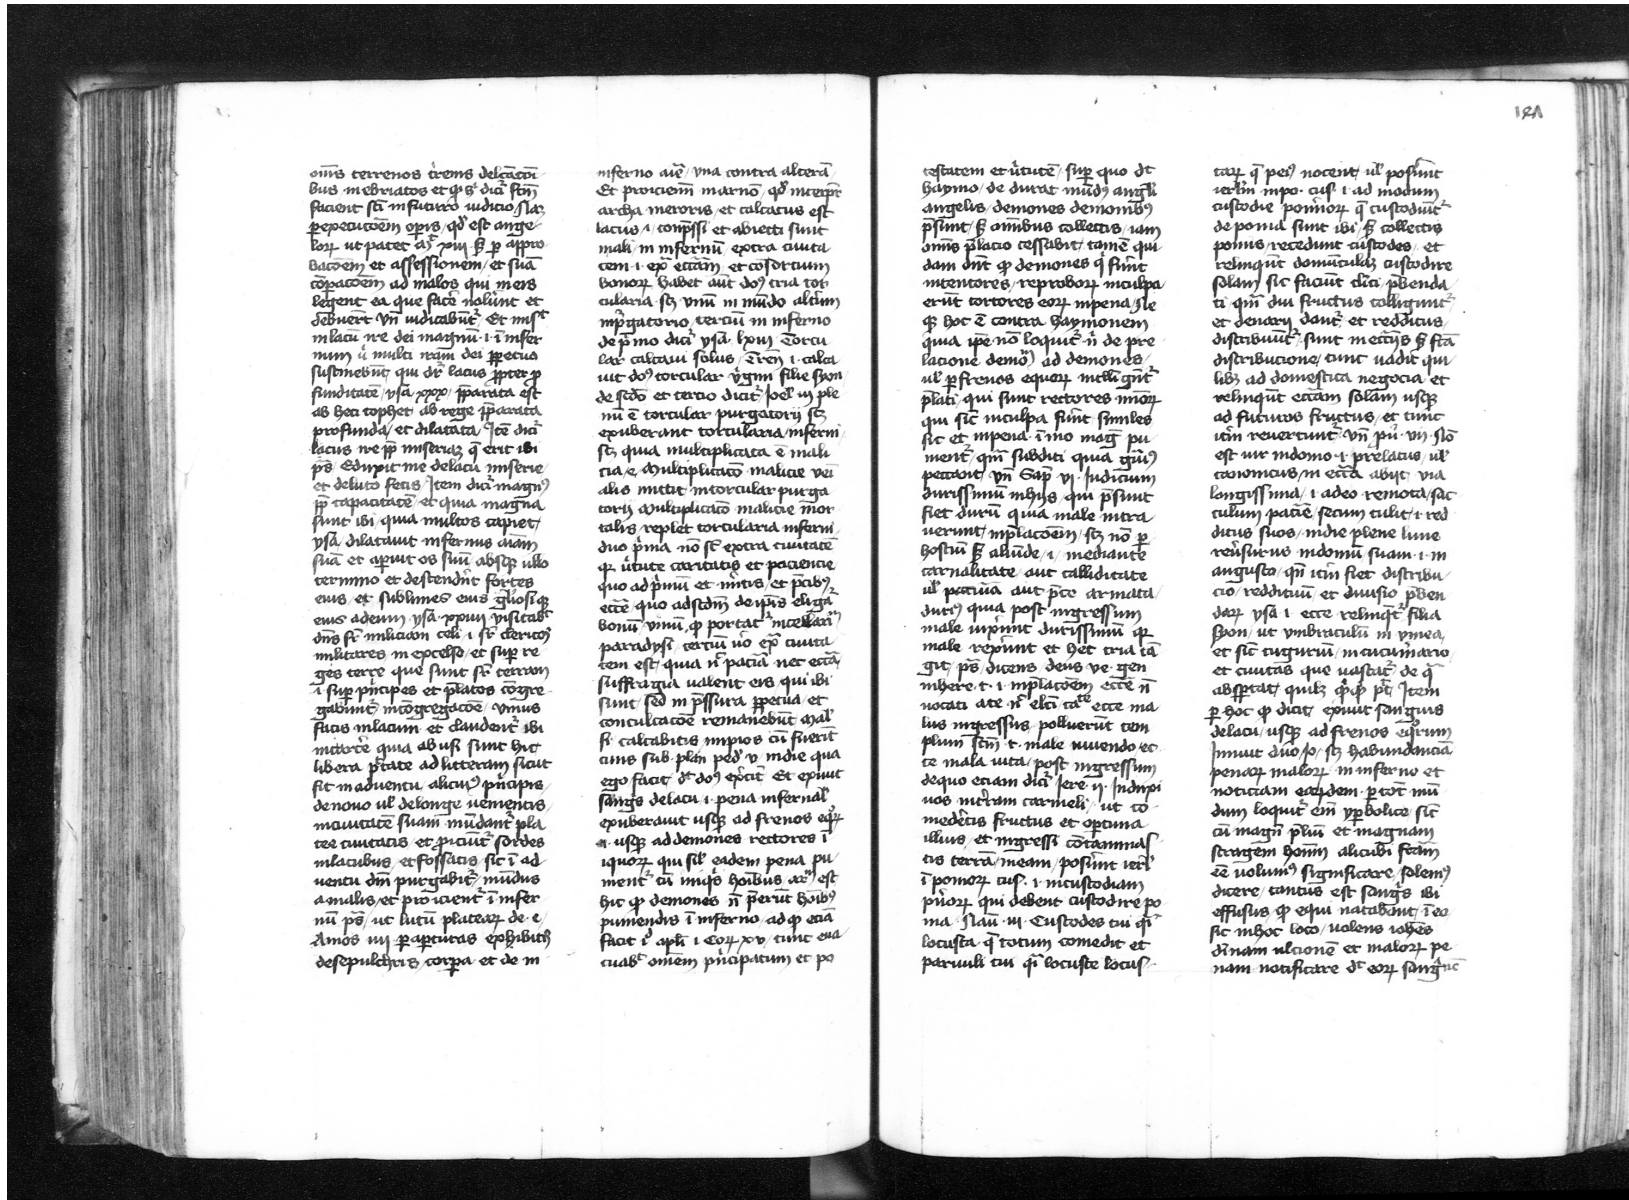 omīs terrenos t̄renis delc̄acōi
bus inebriatos et qͥ sͥ dicͬ stm̄
facient scī in futuro iudicio
ꝑ execucōem opis qd̓ est ange
lorꝝ ut patet xiii sꝫ ꝑ appro
bacōem et assessionem et suā
cōꝑacōem ad malos qui in eis
legent ea que facͤ noluīt et
debuerͭ vn̄ iudicabūtͬ Et misͭ
in lacū ire dei magnū i ī infer
num multi iram dei ꝑpetuo
sustinebūt qui drͬ lacus ꝓpter ꝓ
funditatē ysa xxx p̄parata est
ab heri tophet ab rege p̄parata
profunda et dilatata Itē dicͬ
lacus ire ꝓp miseriaꝫ q̄ erit ibi
p̄s Eduxit me de lacu miserie
et de luto fecis Item dicͬ magnꝰ
ꝓp capacitatē et quia magna
sunt ibi quia multos capiet
ysa dilatauit infernus aīam
suā et aperuit os suū absqꝫ ullo
termino et descendēt fortes
eius et sublimes eius gl̓osi qꝫ
eius ad eum ysa xxiiii visitabͭ
dn̄s sͬ miliciam celi i sͬ clericos
militares in excelso et suꝑ re
ges terre que sunt sͬ terram
i suꝑ pͥncipes et p̄latos cōgre
gabūtͬ in cōgregacōe vnius
facis in lacum et claudentͬ ibi
in carcͤe quia ab usi sunt hic
libera ptͣate ad litteram sicut
fit in aduentu alicuiꝰ pͥncipis
de nouo ul̓ de longe venientis
in ciuitatē suam mūdantͬ pla
tee ciuitatis et ꝓiciūtͬ sordes
in lacubus et fossatis sic ī ad
uentu dn̄i purgabitͬ mūdus
a malis et proicientͬ ī infer
nū p̄s ut lutū platearꝫ de e
Amos iiii ꝑ aꝑturas exhibitͦ
de sepulchris corꝑa et de in
inferno aīe vna contra alterā
Et proiciemī in armon qd̓ interpͬ
archa meroris et calcatus est
lacus i comp̄ssi et abiecti sunt
mali in infernū extra ciuita
tem i exͣ ecciām et consorcium
bonorꝫ habet aūt dōs tria tor
cularia scꝫ vnū in mūdo alt̓um
in pͬgatorio terciū in inferno
de pͥmo dicͬ ysa lxiii Torcu
lar calcaui solus Tren̄ i calca
uit doꝰ torcular vͥgini filie syon
de sc̄do et tercio dicitͬ Joel̓ iii ple
nū ē torcular purgatorij scꝫ
exuberant torcularia inferni
scꝫ quia multiplicata ē mali
cia e Multiplicatō malicie veī
alis mittit in torcular purga
torij Multiplicatō malicie mor
talis replet torcularia inferni
duo pͥma nō st̓ extra ciuitatē
qꝛ v̓tute caritatis et paciencie
quo ad pͥmū et meritis et p̄cibꝰ
ecc̄e quo ad scdm̄ de ip̄is eligͣ
bonū vinū qͥ portatͬ in cellariū
paradysi terciū v̓o exͣ ciuita
tem est quia nͨ paciā nec eccā
suffragia valent eis qui ibi
sunt sed in p̄ssura ꝑpetua et
conculcacōe remanebūt mal̓
fi calcabitis impios cū fuerīt
cinis sub plan̄ pedū v̓ in die qua
ego facit d̓t doꝰ ex̓cit Et exiuit
sang̓s de lacu i pena infernal̓
exuberauit usqꝫ ad frenos equoꝝ
i usqꝫ ad demones rectores ī
iquorꝫ qui sil̓ eadem pena pu
nientͬ cū iniqͥs hoībus
hic qͥ demones n̄ p̄erūt hoībꝰ
puniendis ī inferno ad qͥ eciā
facit i̊ apl̓i i Corꝫ xv tunc eua
cuabͭ omēm pͥncipatum et po
testatem et v̓tutē suꝑ quo d̓t
haymo de durat mūdꝰ angl̓i
angelis demones demonibꝰ
p̄sunt sꝫ omībus collectis iam
omīs p̄lacio cessabit tamē qui
dam dn̄t qͥ demones qͥ fūit
intentores reproborꝫ in culpa
erūt tortores eorꝫ in pena Ne
qꝫ hoc ē contra haymonem
quia ip̄e nō loquitͬ n̄ de pre
lacione demoꝝ ad demones
ul̓ ꝑ frenos equorꝫ intll̓igūtͬ
p̄lati qui sunt rectores inioꝝ
qui sicͭ in culpa sunt similes
sic et in pena ī mo magͥ pu
nientͬ qm̄ subditi quia gͣuiꝰ
peccauīt vn̄ Sap̄ vi Iudicium
durissimū in hijs qui p̄sunt
fiet durū quia male intra
uerunt in p̄lacōem scꝫ nō ꝑ
hostiū sꝫ aliūde i mediante
carnalitate aut calliditate
ul̓ pecunia aut p̄ce armata
durꝰ quia post ingressum
male vixerunt durissimū qꝛ
male rexerunt et hec tria tā
git p̄s dicens deus ve gen
in here t i in p̄lacōem ecc̄e n̄
vocati a te n̄ el̓cī cāte ecce ma
lus ingressus polluerūt tem
plum scm̄ t male viuendo ec
ce mala vita post ingressum
de quo eciam dicͬ Jere ij Induxi
vos in terram carmeli ut co
mederetis fructus et optima
illius et ingressi cōtaminaſ
tis terrā meam posuerūt ierl̓m
ī pomorꝫ cuſ i in custodiam
pͥorꝫ qui debent custodire po
ma Naū iii Custodes tui qͣi
locusta q̄ totum comedit et
paruuli tui qͣi locuste locuſ
tarꝫ q̄ peiꝰ nocent ul̓ posuerūt
ierlm̄ in po cuſ i ad modum
custodie pomorꝫ q̄ custodiūtͬ
de poma sunt ibi sꝫ collectis
pomis recedunt custodes et
relinqūt domūculaꝫ custodie
solam sic faciūt cl̓ici p̄benda
ti qm̄ diu fructus colliguntͬ
et denarij dantͬ et redditus
distribuūtͬ sunt in ecc̄ijs sꝫ fcā
distribucione tunc vadit qui
libꝫ ad domestica negocia et
relinqūt ecciam solam usqꝫ
ad futuros fructus et tunc
itm̄ reuertuntͬ vn̄ pͥu vij Nō
est vir in domo i prelatus ul̓
canonicus in eccā abijt via
longissima i adeo remota sac
culum pacīe secum tulit i red
ditus suos in die plene lune
reuersurus in domū suam i in
augusto qn̄ itm̄ fiet distribu
cio reddituū et diuisio p̄ben
darꝫ ysa i ecce relinqͬ filia
syon ut vmbraculū in vinea
et sic tugurium in cucumͥario
et ciuitas que vastatͬ de qͣ
absportat quilꝫ qͥ qͥ pͭt Item
ꝑ hoc qͥ dicit exiuit sanguis
de lacu usqꝫ ad frenos equorum
Innuit duo Jo scꝫ habundanciā
penarꝫ malorꝫ in inferno et
noticiam earꝫdem ꝑ totͧ mū
dum loquitͬ em̄ yꝑbolice sicͭ
cū magn̄ p̄lium et magnam
stragem homī alicubi fcām
eē volumꝰ significare solemꝰ
dicere tantus est sang̓s ibi
effusus qͥ equi natabant ī eo
sic in hoc loco volens iohēs
diuinam ulcionē et malorꝫ pe
nam notificare d̓t eorꝫ sang̓nē